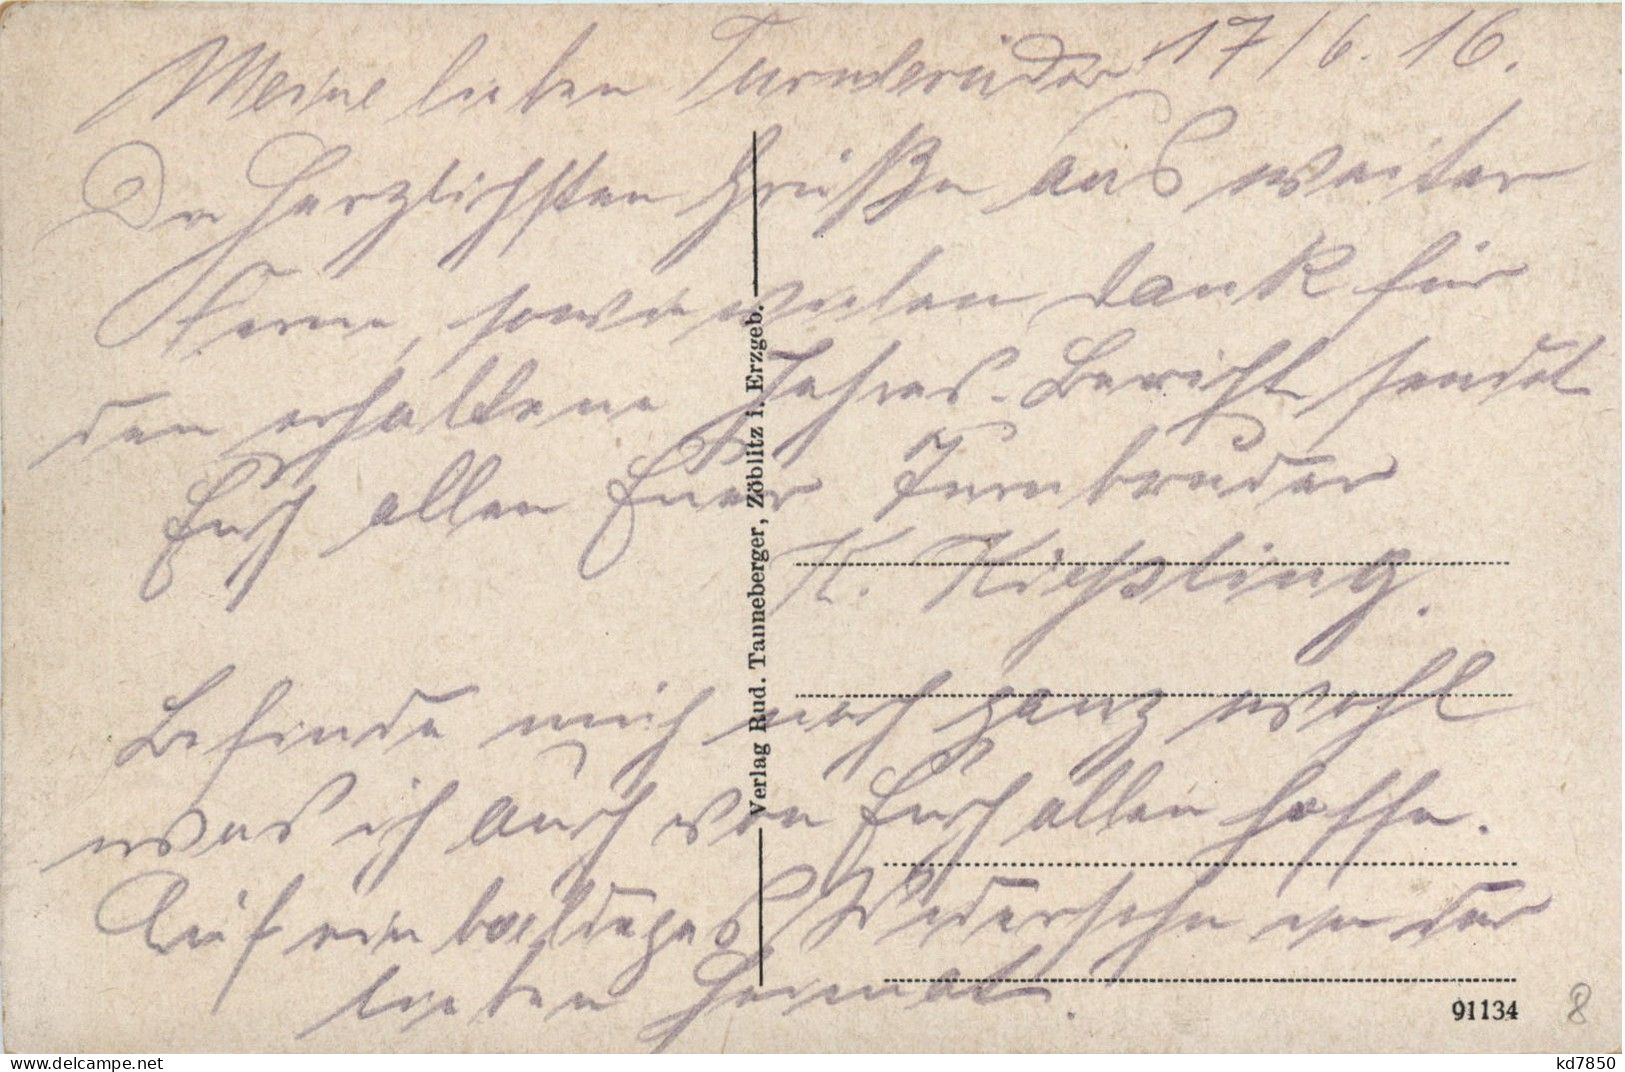 Meine lieben Turnbrüder 17/6.16.
Die herzlichsten Grüße aus weiter
Ferne, sowie vielen Dank für
den erhaltene Jahres-Bericht sendet
Euch allen Euer Turnbruder
K. Kießling.
Befinde mich noch ganz wohl
was ich auch von Euch allen hoffe.
Auf ein baldiges Wiedersehn in der
lieben Heimat.
Verlag Rud. Tanneberger, Zöblitz i. Erzgeb.
91134
8
kd7850
www.delcampe.net